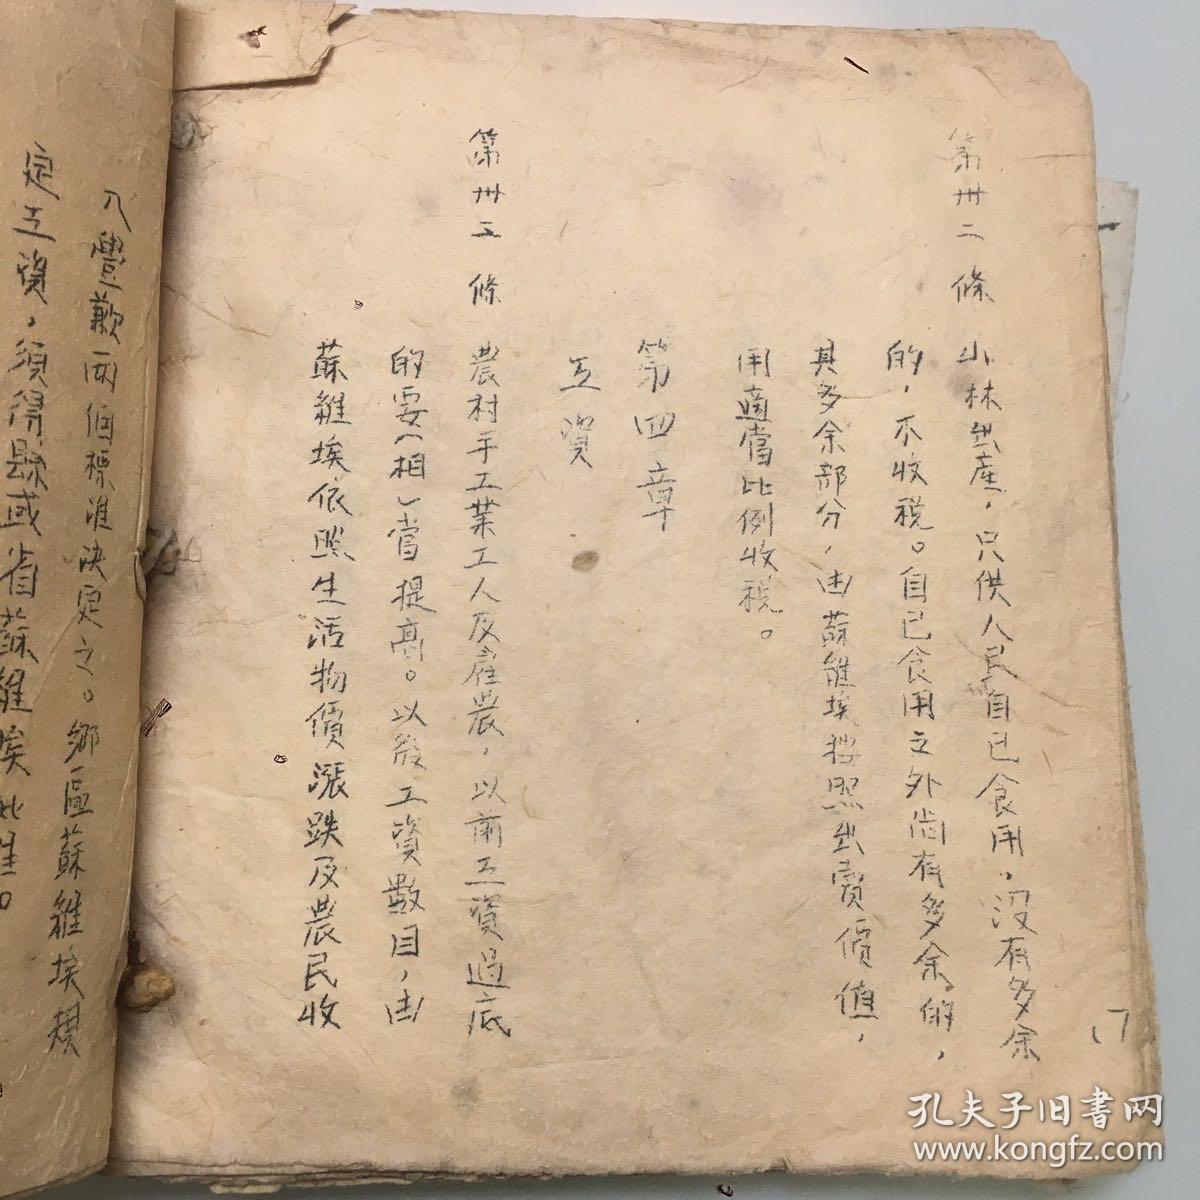 第卅二條 山林出產，只供人民自己食用，沒有多余
的，不收稅。自己食用之外尚有多余的，
其多余部分，由蘇維埃按照出賣價值，
用適當比例收稅。
第四章
工資
第卅五條 農村手工業工人及雇農，以前工資過底
的要（相）當提高。以後工資數目，由
蘇維埃依照生活物價漲跌及農民收
入豐歉兩個標准決定之。鄉區蘇維埃規
定工資，須得縣或省蘇維埃批准。
17
孔夫子旧书网
www.kongfz.com